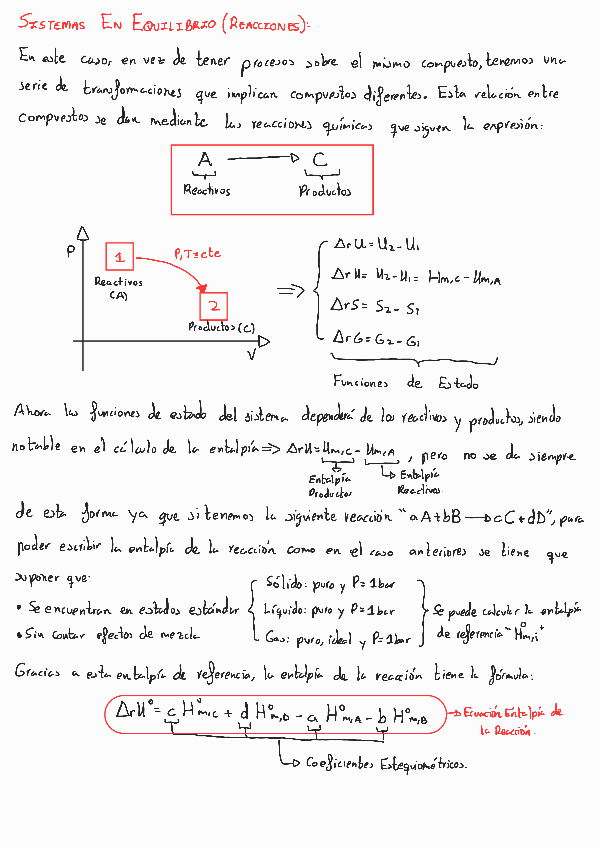 SISTEMAS EN EQUILIBRIO (REACCIONES):
En este caso, en vez de tener procesos sobre el mismo compuesto, tenemos una
serie de transformaciones que implican compuestos diferentes. Esta relación entre
compuestos se dan mediante las reacciones químicas que siguen la expresión:
A → C
Reactivos Productos
P
1
P,T=cte
Reactivos
(A)
2
Productos (C)
V
⇒
ΔrU = U2 - U1
ΔrH = H2 - H1 = Hm,C - Hm,A
ΔrS = S2 - S1
ΔrG = G2 - G1
Funciones de Estado
Ahora las funciones de estado del sistema dependerá de los reactivos y productos, siendo
notable en el cálculo de la entalpía ⇒ ΔrH = Hm,C - Hm,A , pero no se da siempre
Entalpía Productos
Entalpía Reactivos
de esta forma ya que si tenemos la siguiente reacción "aA+bB → cC+dD", para
poder escribir la entalpía de la reacción como en el caso anteriores se tiene que
suponer que:
• Se encuentran en estados estándar
• Sin contar efectos de mezcla
Sólido: puro y P=1bar
Líquido: puro y P=1bar
Gas: puro, ideal y P=1bar
Se puede calcular la entalpía
de referencia "H°m,i"
Gracias a esta entalpía de referencia, la entalpía de la reacción tiene la fórmula:
ΔrH° = c H°m,C + d H°m,D - a H°m,A - b H°m,B
→ Ecuación Entalpía de
la Reacción.
→ Coeficientes Estequiométricos.